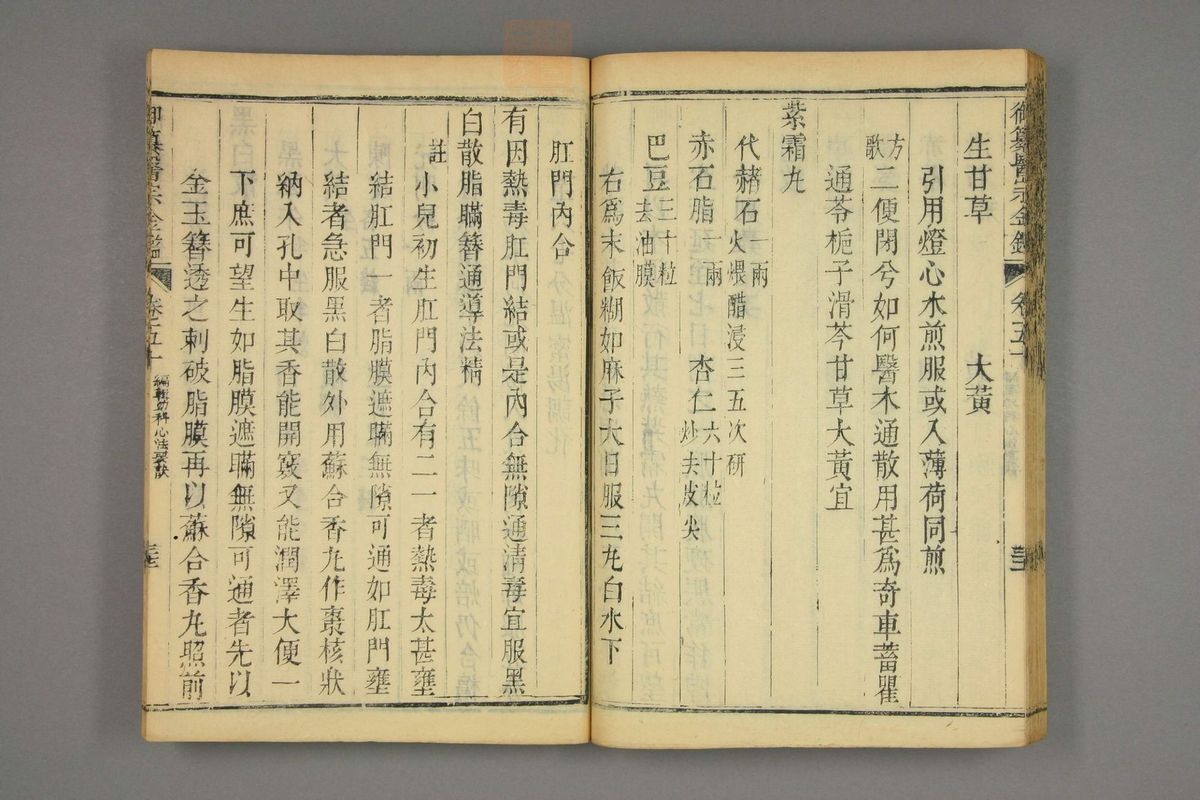 御纂醫宗金鑑 卷五十
生甘草 大黃
引用燈心水煎服或入薄荷同煎
方歌 二便閉兮如何醫木通散用甚爲奇車蓄瞿
通苓梔子滑芩甘草大黃宜
紫霜丸
代赭石一兩火煨醋浸三五次研
赤石脂一兩 杏仁六十粒炒去皮尖
巴豆三十粒去油膜
右爲末飯糊如麻子大日服三丸白水下
肛門內合
有因熱毒肛門結或是內合無隙通清毒宜服黑
白散脂瞞簪通導法精
註 小兒初生肛門內合有二一者熱毒太甚壅
結肛門一者脂膜遮瞞無隙可通如肛門壅
結者急服黑白散外用蘇合香丸作棗核狀
納入孔中取其香能開竅又能潤澤大便一
下庶可望生如脂膜遮瞞無隙可通者先以
金玉簪透之刺破脂膜再以蘇合香丸照前
御纂醫宗金鑑 卷五十 編輯幼科心法要訣